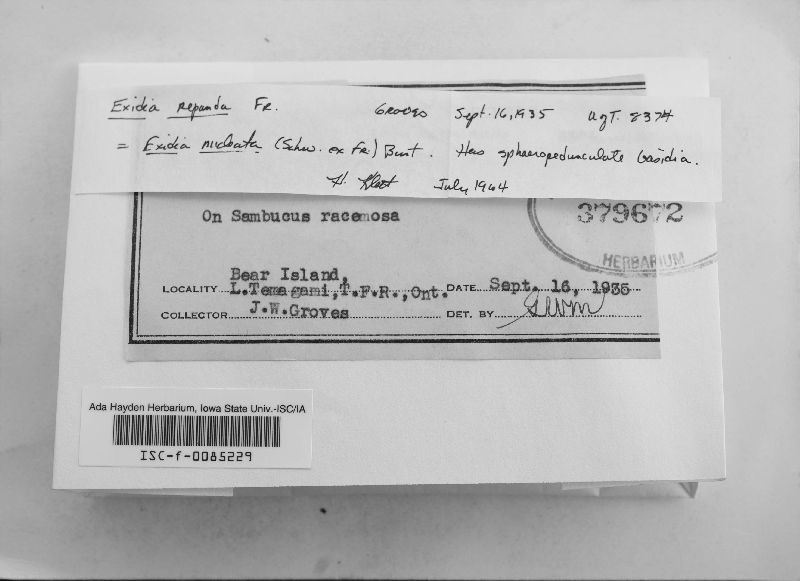 Exidia repanda Fr. Groves Sept. 16, 1935 8374
= Exidia nucleata (Schw. ex Fr.) Burt. Has sphaeropedunculate basidia.
H. July 1964
On Sambucus racemosa
379672
HERBARIUM
Bear Island,
LOCALITY L.Temagami,T.F.R.,Ont. DATE Sept. 16, 1935
COLLECTOR J.W.Groves DET. BY
Ada Hayden Herbarium, Iowa State Univ.-ISC/IA
ISC-f-0085229